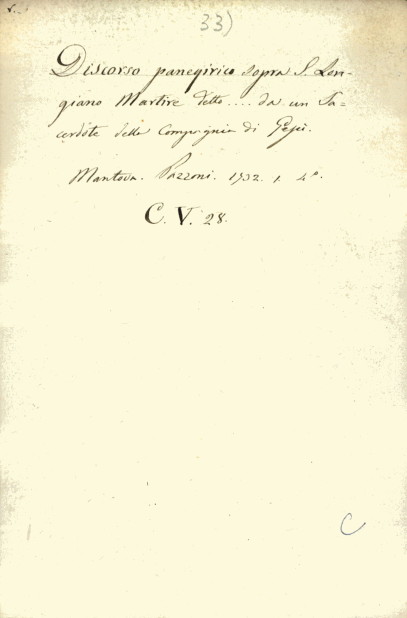 33)
Discorso panegirico sopra S. Lon-
giano Martire detto .... da un Sa=
cerdote della Compagnia di Gesù.
Mantova. Pazzoni. 1732. 4°.
C. V. 28.
C